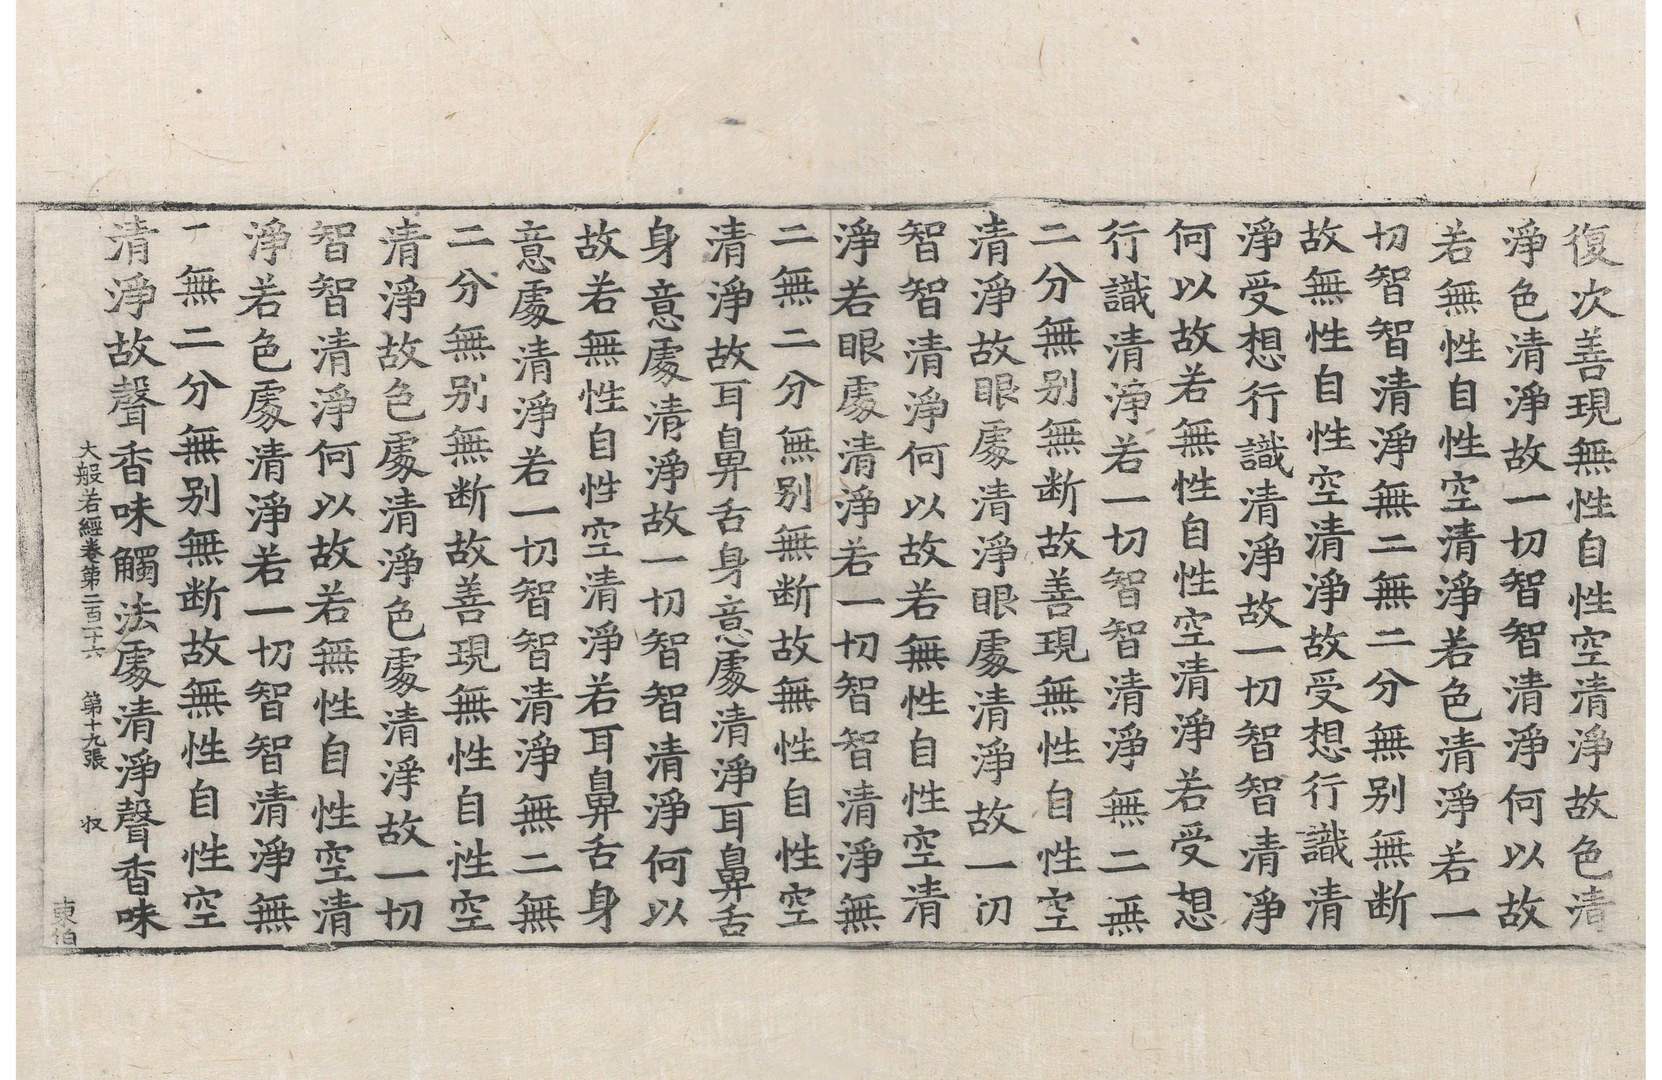 復次善現無性自性空清淨故色清
淨色清淨故一切智智清淨何以故
若無性自性空清淨若色清淨若一
切智智清淨無二無二分無别無断
故無性自性空清淨故受想行識清
淨受想行識清淨故一切智智清淨
何以故若無性自性空清淨若受想
行識清淨若一切智智清淨無二無
二分無别無断故善現無性自性空
清淨故眼處清淨眼處清淨故一切
智智清淨何以故若無性自性空清
淨若眼處清淨若一切智智清淨無
二無二分無别無断故無性自性空
清淨故耳鼻舌身意處清淨耳鼻舌
身意處清淨故一切智智清淨何以
故若無性自性空清淨若耳鼻舌身
意處清淨若一切智智清淨無二無
二分無别無断故善現無性自性空
清淨故色處清淨色處清淨故一切
智智清淨何以故若無性自性空清
淨若色處清淨若一切智智清淨無
二無二分無别無断故無性自性空
清淨故聲香味觸法處清淨聲香味
大般若經卷第二百二十六 第十九張 收
東伯